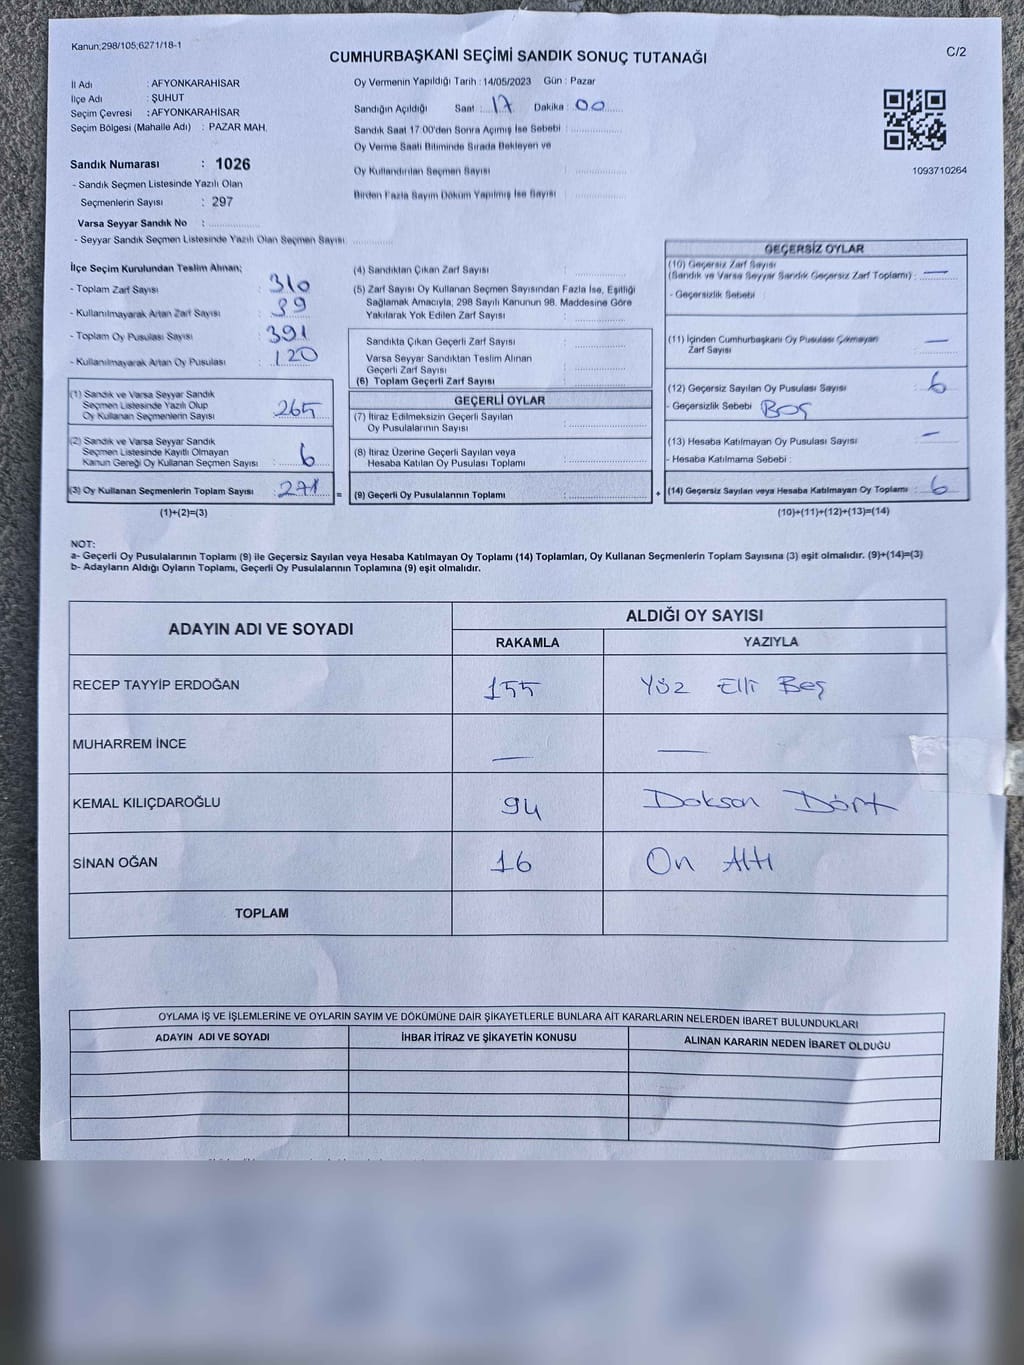 Kanun;298/105;6271/18-1
C/2
CUMHURBAŞKANI SEÇİMİ SANDIK SONUÇ TUTANAĞI
İl Adı : AFYONKARAHİSAR
İlçe Adı : ŞUHUT
Seçim Çevresi : AFYONKARAHİSAR
Seçim Bölgesi (Mahalle Adı) : PAZAR MAH.
Sandık Numarası : 1026
- Sandık Seçmen Listesinde Yazılı Olan
Seçmenlerin Sayısı : 297
Varsa Seyyar Sandık No :
- Seyyar Sandık Seçmen Listesinde Yazılı Olan Seçmen Sayısı
Oy Vermenin Yapıldığı Tarih : 14/05/2023 Gün : Pazar
Sandığın Açıldığı Saat : 17 Dakika : 00
Sandık Saat 17:00'den Sonra Açımış İse Sebebi :
Oy Verme Saati Bitiminde Sırada Bekleyen ve
Oy Kullandırılan Seçmen Sayısı :
Birden Fazla Sayım Döküm Yapılmış İse Sayısı :
1093710264
İlçe Seçim Kurulundan Teslim Alınan;
- Toplam Zarf Sayısı : 310
- Kullanılmayarak Artan Zarf Sayısı : 39
- Toplam Oy Pusulası Sayısı : 391
- Kullanılmayarak Artan Oy Pusulası : 120
(1) Sandık ve Varsa Seyyar Sandık
Seçmen Listesinde Yazılı Olup
Oy Kullanan Seçmenlerin Sayısı : 265
(2) Sandık ve Varsa Seyyar Sandık
Seçmen Listesinde Kayıtlı Olmayan
Kanun Gereği Oy Kullanan Seçmen Sayısı : 6
(3) Oy Kullanan Seçmenlerin Toplam Sayısı : 271 =
(1)+(2)=(3)
(4) Sandıktan Çıkan Zarf Sayısı :
(5) Zarf Sayısı Oy Kullanan Seçmen Sayısından Fazla İse, Eşitliği
Sağlamak Amacıyla, 298 Sayılı Kanunun 98. Maddesine Göre
Yakılarak Yok Edilen Zarf Sayısı :
Sandıkta Çıkan Geçerli Zarf Sayısı :
Varsa Seyyar Sandıktan Teslim Alınan
Geçerli Zarf Sayısı :
(6) Toplam Geçerli Zarf Sayısı :
GEÇERLİ OYLAR
(7) İtiraz Edilmeksizin Geçerli Sayılan
Oy Pusulalarının Sayısı :
(8) İtiraz Üzerine Geçerli Sayılan veya
Hesaba Katılan Oy Pusulası Toplamı :
(9) Geçerli Oy Pusulalarının Toplamı : +
GEÇERSİZ OYLAR
(10) Geçersiz Zarf Sayısı
(Sandık ve Varsa Seyyar Sandık Geçersiz Zarf Toplamı) : —
- Geçersizlik Sebebi :
(11) İçinden Cumhurbaşkanı Oy Pusulası Çıkmayan
Zarf Sayısı : —
(12) Geçersiz Sayılan Oy Pusulası Sayısı : 6
- Geçersizlik Sebebi : BOŞ
(13) Hesaba Katılmayan Oy Pusulası Sayısı : —
- Hesaba Katılmama Sebebi :
(14) Geçersiz Sayılan veya Hesaba Katılmayan Oy Toplamı : 6
(10)+(11)+(12)+(13)=(14)
NOT:
a- Geçerli Oy Pusulalarının Toplamı (9) ile Geçersiz Sayılan veya Hesaba Katılmayan Oy Toplamı (14) Toplamları, Oy Kullanan Seçmenlerin Toplam Sayısına (3) eşit olmalıdır. (9)+(14)=(3)
b- Adayların Aldığı Oyların Toplamı, Geçerli Oy Pusulalarının Toplamına (9) eşit olmalıdır.
ADAYIN ADI VE SOYADI
ALDIĞI OY SAYISI
RAKAMLA YAZIYLA
RECEP TAYYİP ERDOĞAN 155 Yüz Elli Beş
MUHARREM İNCE — —
KEMAL KILIÇDAROĞLU 94 Doksan Dört
SİNAN OĞAN 16 On Altı
TOPLAM
OYLAMA İŞ VE İŞLEMLERİNE VE OYLARIN SAYIM VE DÖKÜMÜNE DAİR ŞİKAYETLERLE BUNLARA AİT KARARLARIN NELERDEN İBARET BULUNDUKLARI
ADAYIN ADI VE SOYADI İHBAR İTİRAZ VE ŞİKAYETİN KONUSU ALINAN KARARIN NEDEN İBARET OLDUĞU